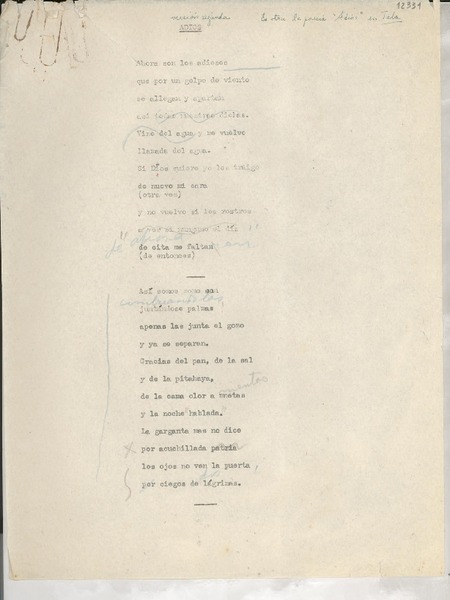 12351
Es otra la poesía "Adiós" en Tala
ADIOS
Ahora son los adioses
que por un golpe de viento
se allegan y apartan
así todas nuestras dichas.
Vine del agua y me vuelvo
llamada del agua.
Si Dios quiere yo les traigo
de nuevo mi cara
(otra vez)
y no vuelvo si los rostros
de cita me faltan
(de entonces)
Así somos como son
cimbreándose
juntándose palmas
apenas las junta el gozo
y ya se separan.
Gracias del pan, de la sal
y de la pitahaya,
de la cama olor a mentas
mentas
y la noche hablada.
La garganta mas no dice
por acuchillada patria
los ojos no ven la puerta
por ciegos de lágrimas.